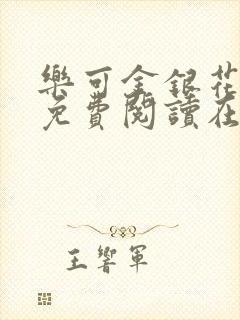 樂可金銀花
免費閱讀在
王響軍